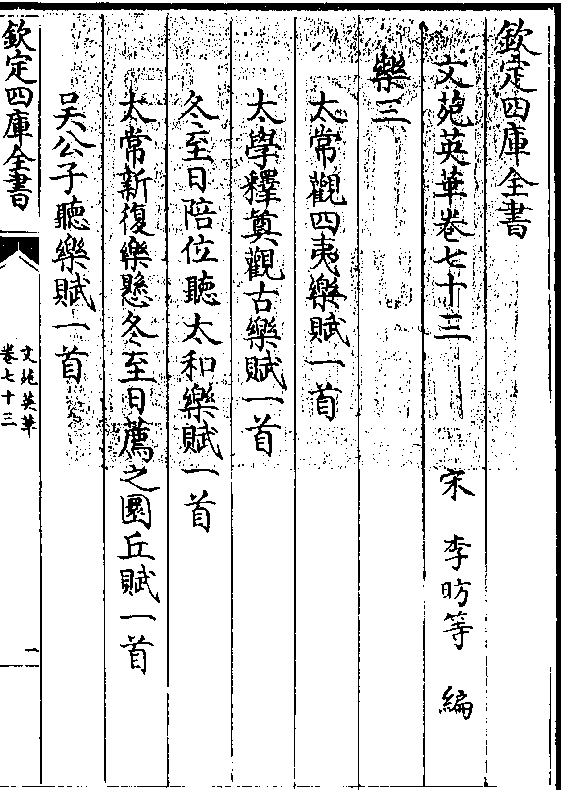 欽定四庫全書
文苑英華卷七十三 宋 李昉等 編
樂三
太常觀四夷樂賦一首
太學釋奠觀古樂賦一首
冬至日陪位聽太和樂賦一首
太常新復樂懸冬至日薦之圜丘賦一首
吳公子聽樂賦一首
欽定四庫全書
文苑英華
卷七十三
一